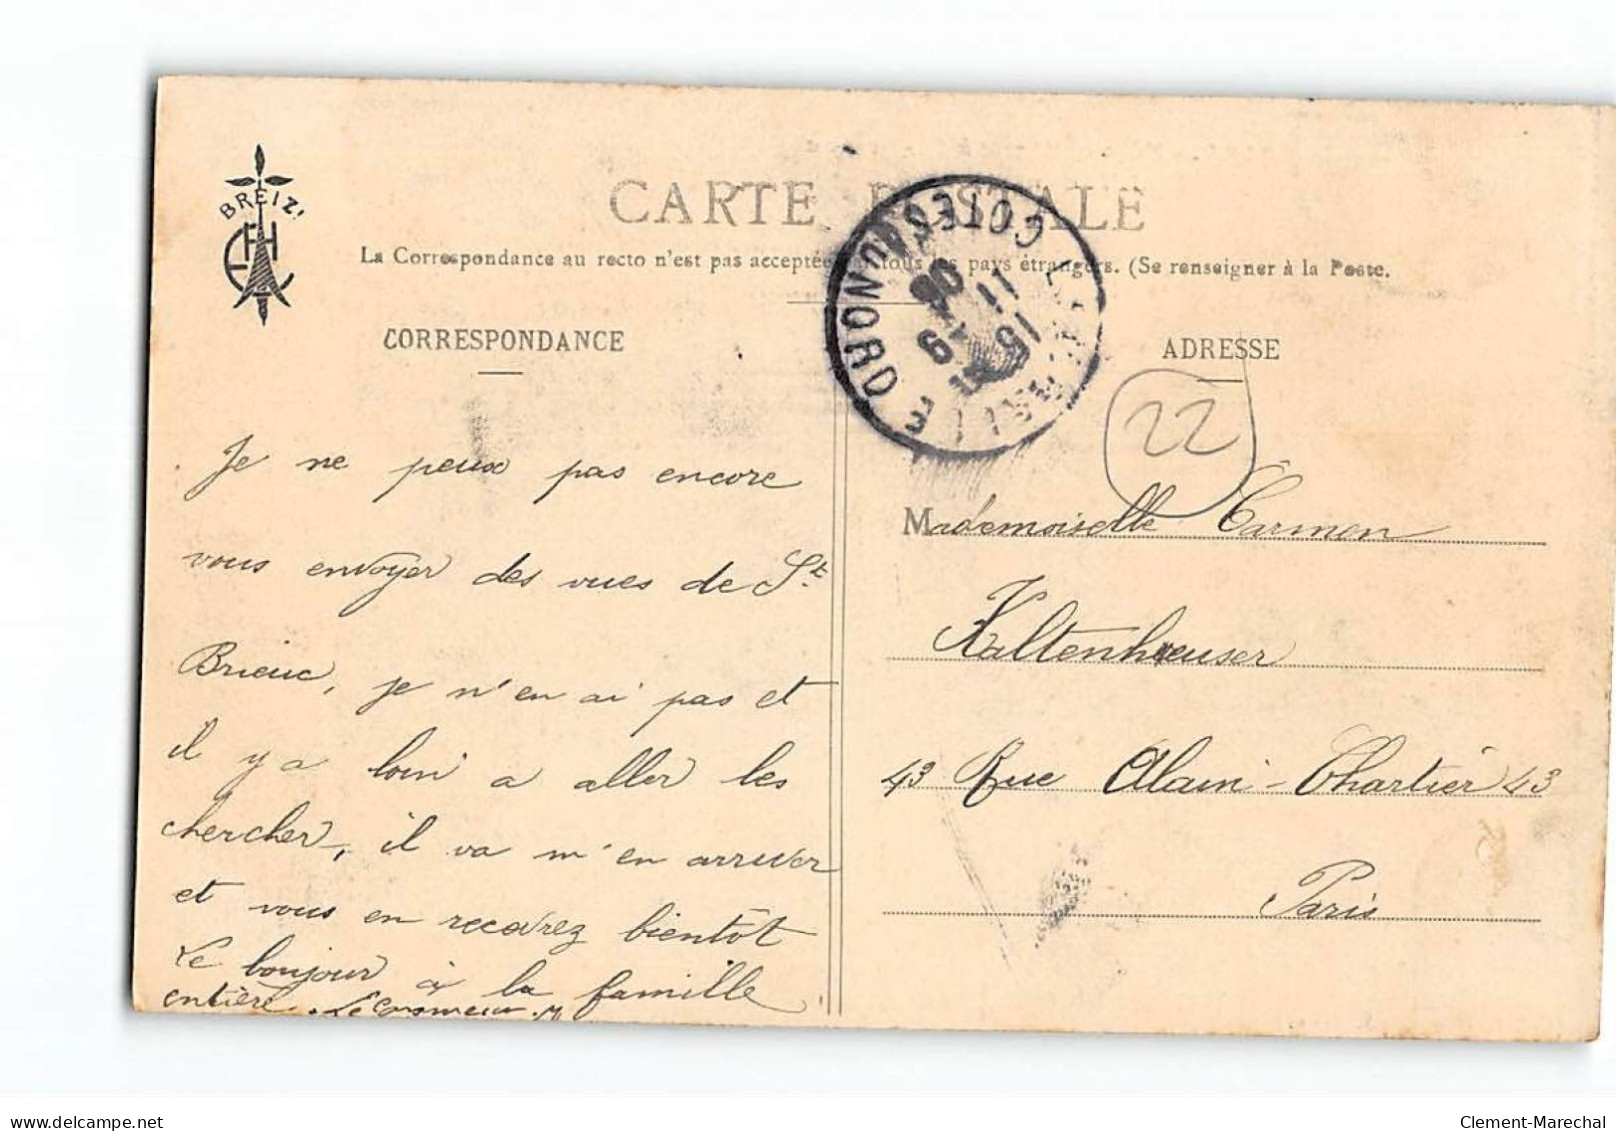 BREIZ
CARTE POSTALE
La Correspondance au recto n'est pas acceptée par tous les pays étrangers. (Se renseigner à la Poste.
CORRESPONDANCE
Je ne peux pas encore
vous envoyer des vues de St
Brieuc, je n'en ai pas et
il y a loin a aller les
chercher, il va m'en arriver
et vous en recevrez bientôt
Le bonjour à la famille
entière.
COTES DU NORD
15
11
ADRESSE
22
Mademoiselle Carmen
Kaltenheuser
43 Rue Alain-Chartier 43
Paris
Clement-Marechal